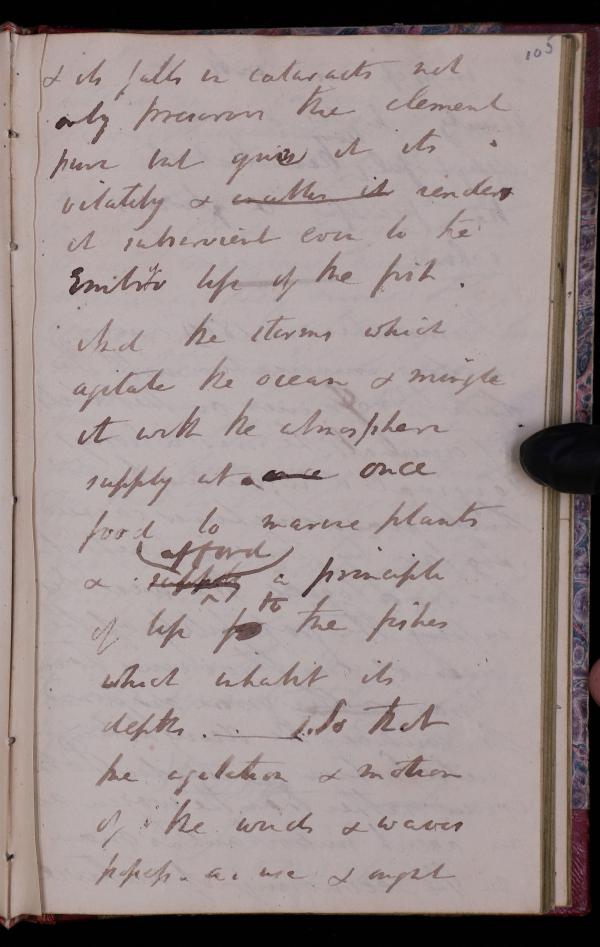 105
& its falls in cataracts not
only preserves the element
pure but gives it its
vitality & makes it renders
it subservient even to the
life of the fish.
And the storms which
agitate the ocean & mingle
it with the atmosphere
supply at once once
food to marine plants
afford
& supply a principle
to
of life for the fishes
which inhabit its
depths. So that
the agitation & motion
of the winds & waves
possess a use & ought